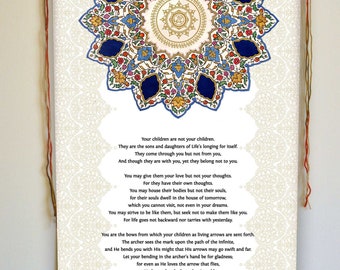 Your children are not your children.
They are the sons and daughters of Life's longing for itself.
They come through you but not from you,
And though they are with you, yet they belong not to you.
You may give them your love but not your thoughts.
For they have their own thoughts.
You may house their bodies but not their souls,
for their souls dwell in the house of tomorrow,
which you cannot visit, not even in your dreams.
You may strive to be like them, but seek not to make them like you.
For life goes not backward nor tarries with yesterday.
You are the bows from which your children as living arrows are sent forth.
The archer sees the mark upon the path of the infinite,
and He bends you with His might that His arrows may go swift and far.
Let your bending in the archer's hand be for gladness,
for even as He loves the arrow that flies,